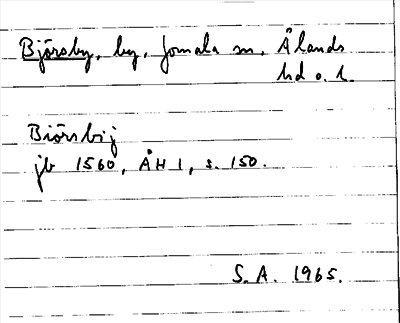 Björsby, by, Jomala sn, Ålands
hd o. l.
Biörsbij
jb 1560, ÅH 1, s. 150.
S.A. 1965.